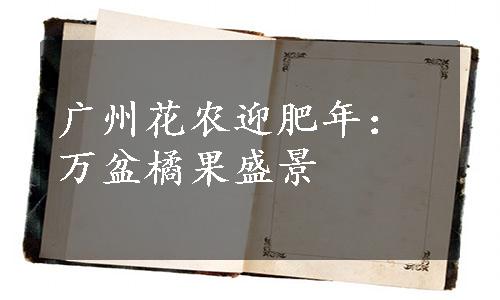 广州花农迎肥年：
万盆橘果盛景